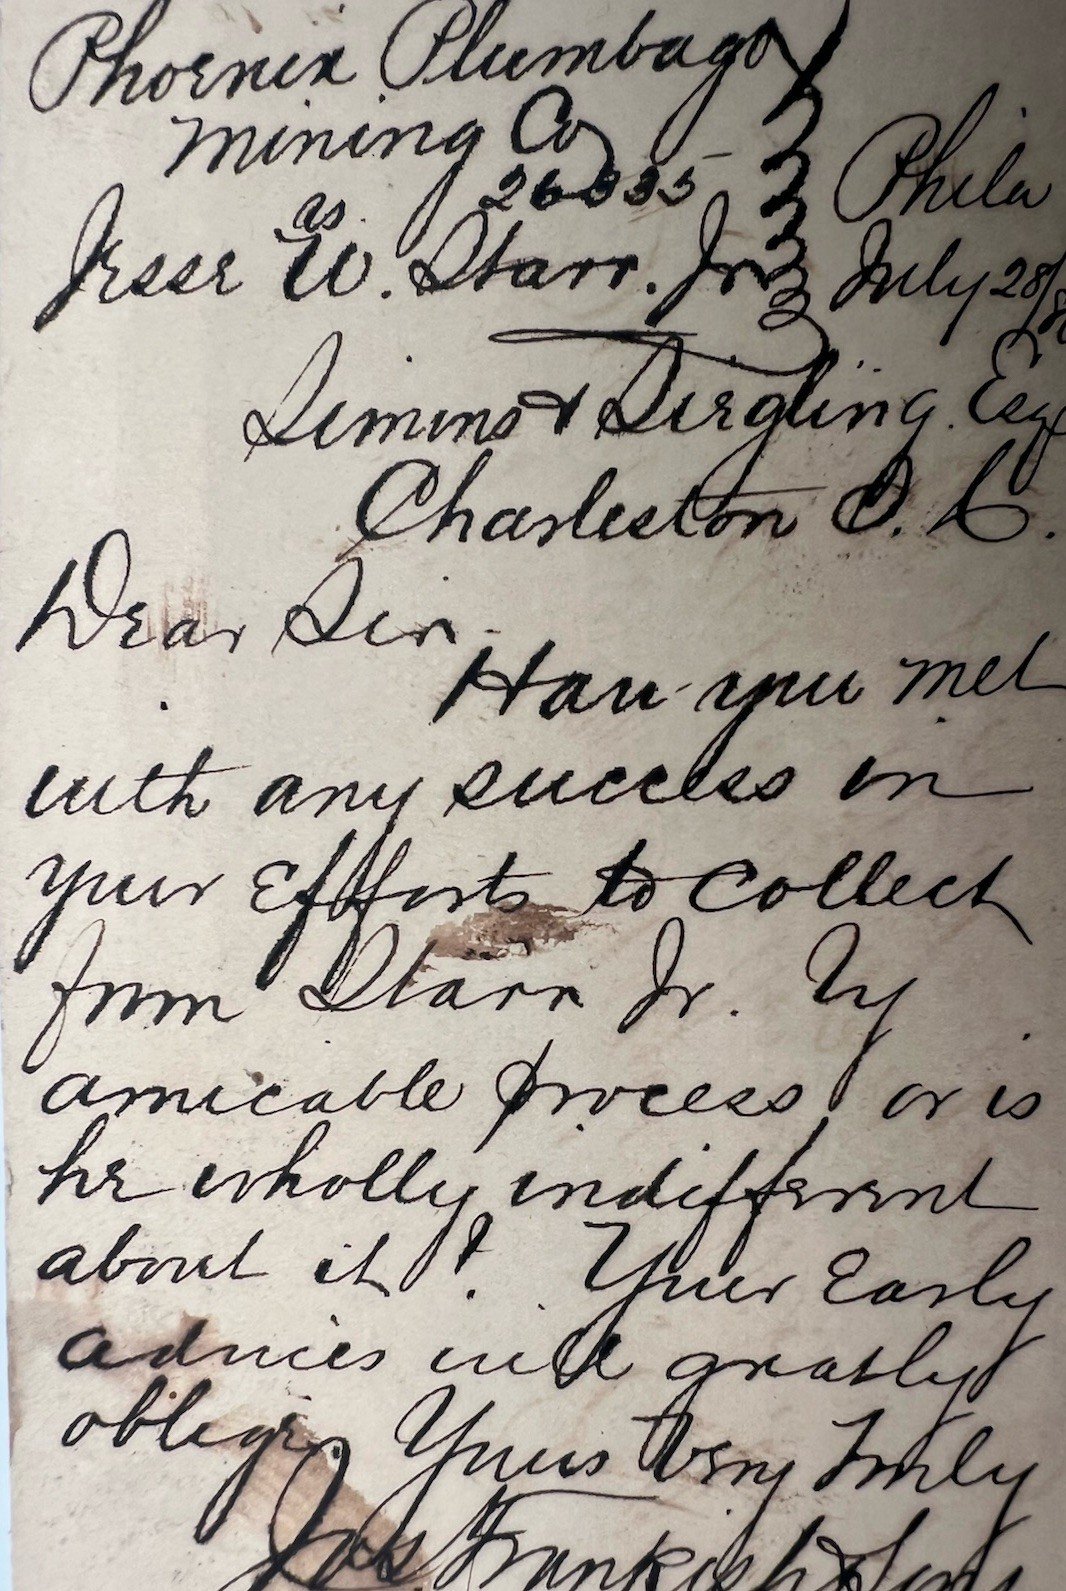 Phoenix Plumbago
Mining Co
26335
as.
Jesse W. Starr. Jr
Phila
July 28/
Simons & Siegling. Esq
Charleston S. C.
Dear Sir.
Have you met
with any success in
your Efforts to collect
from Starr Jr. by
amicable process, or is
he wholly indifferent
about it? Your Early
advices will greatly
oblige. Yours Very Truly
Jos Frankish & Sons